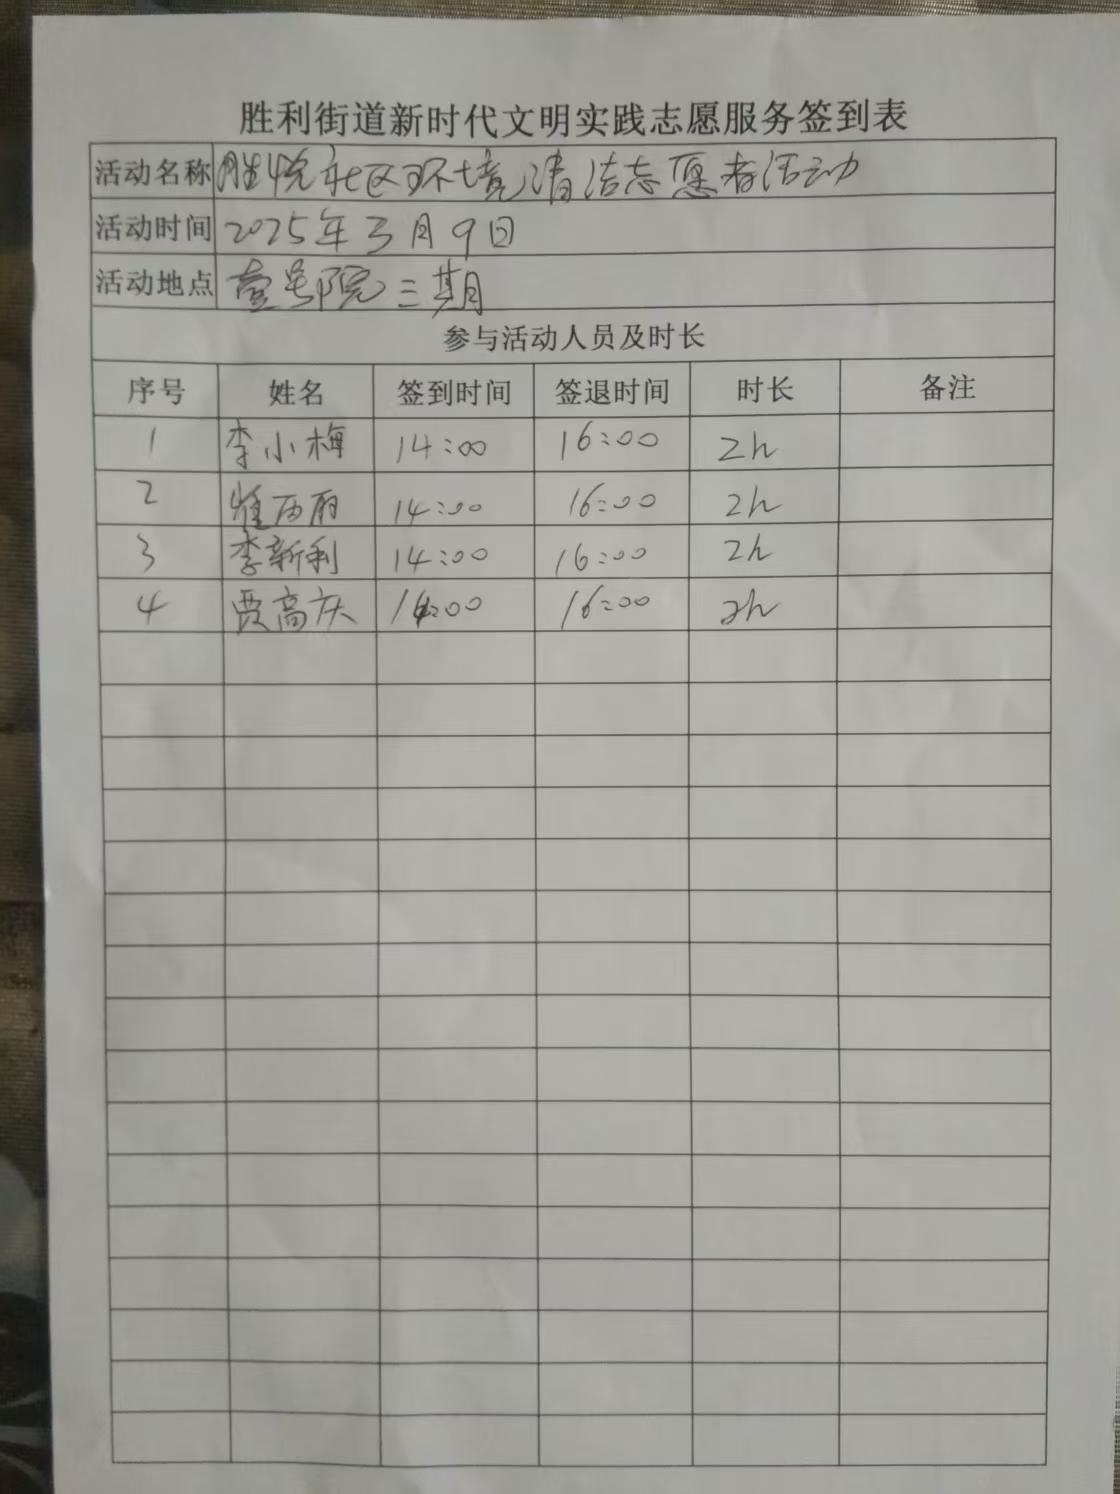 胜利街道新时代文明实践志愿服务签到表
活动名称 胜悦社区环境清洁志愿者活动
活动时间 2025年3月9日
活动地点 壹号院三期
参与活动人员及时长
序号 姓名 签到时间 签退时间 时长 备注
1 李小梅 14:00 16:00 2h
2 14:00 16:00 2h
3 李新利 14:00 16:00 2h
4 贾高庆 14:00 16:00 2h